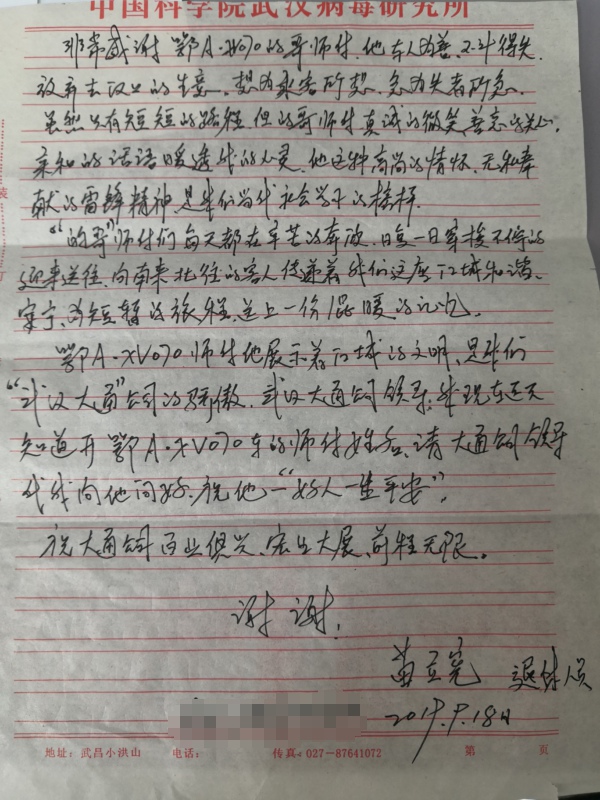 中国科学院武汉病毒研究所
非常感谢 鄂A·XV070的哥师付,他本人为善,不计得失,
放弃去汉口的生意,想为乘客所想,急为失者所急。
虽然只有短短的路程,但的哥师付真诚的微笑,善意的关心,
亲和的话语暖透我的心灵。他这种高尚的情怀,无私奉
献的雷锋精神是我们当代社会学习的榜样。
“的哥”师付们每天都在辛苦的奔波,日复一日穿梭不停的
迎来送往,向南来北往的客人传递着我们这座江城和谐、
安宁,为短暂的旅程,送上一份温暖的记忆。
鄂A·XV070师付他展示着江城的文明,是我们
“武汉大通”公司的骄傲。武汉大通公司领导:我现在还不
知道开鄂A·XV070车的师付姓名,请大通公司领导
代我向他问好,祝他一“好人一生平安”。
祝大通公司百业俱兴、宏业大展、前程无限。
谢谢!
退休人员
2019.9.18日
地址:武昌小洪山 电话: 传真:027-87641072 第 页
装